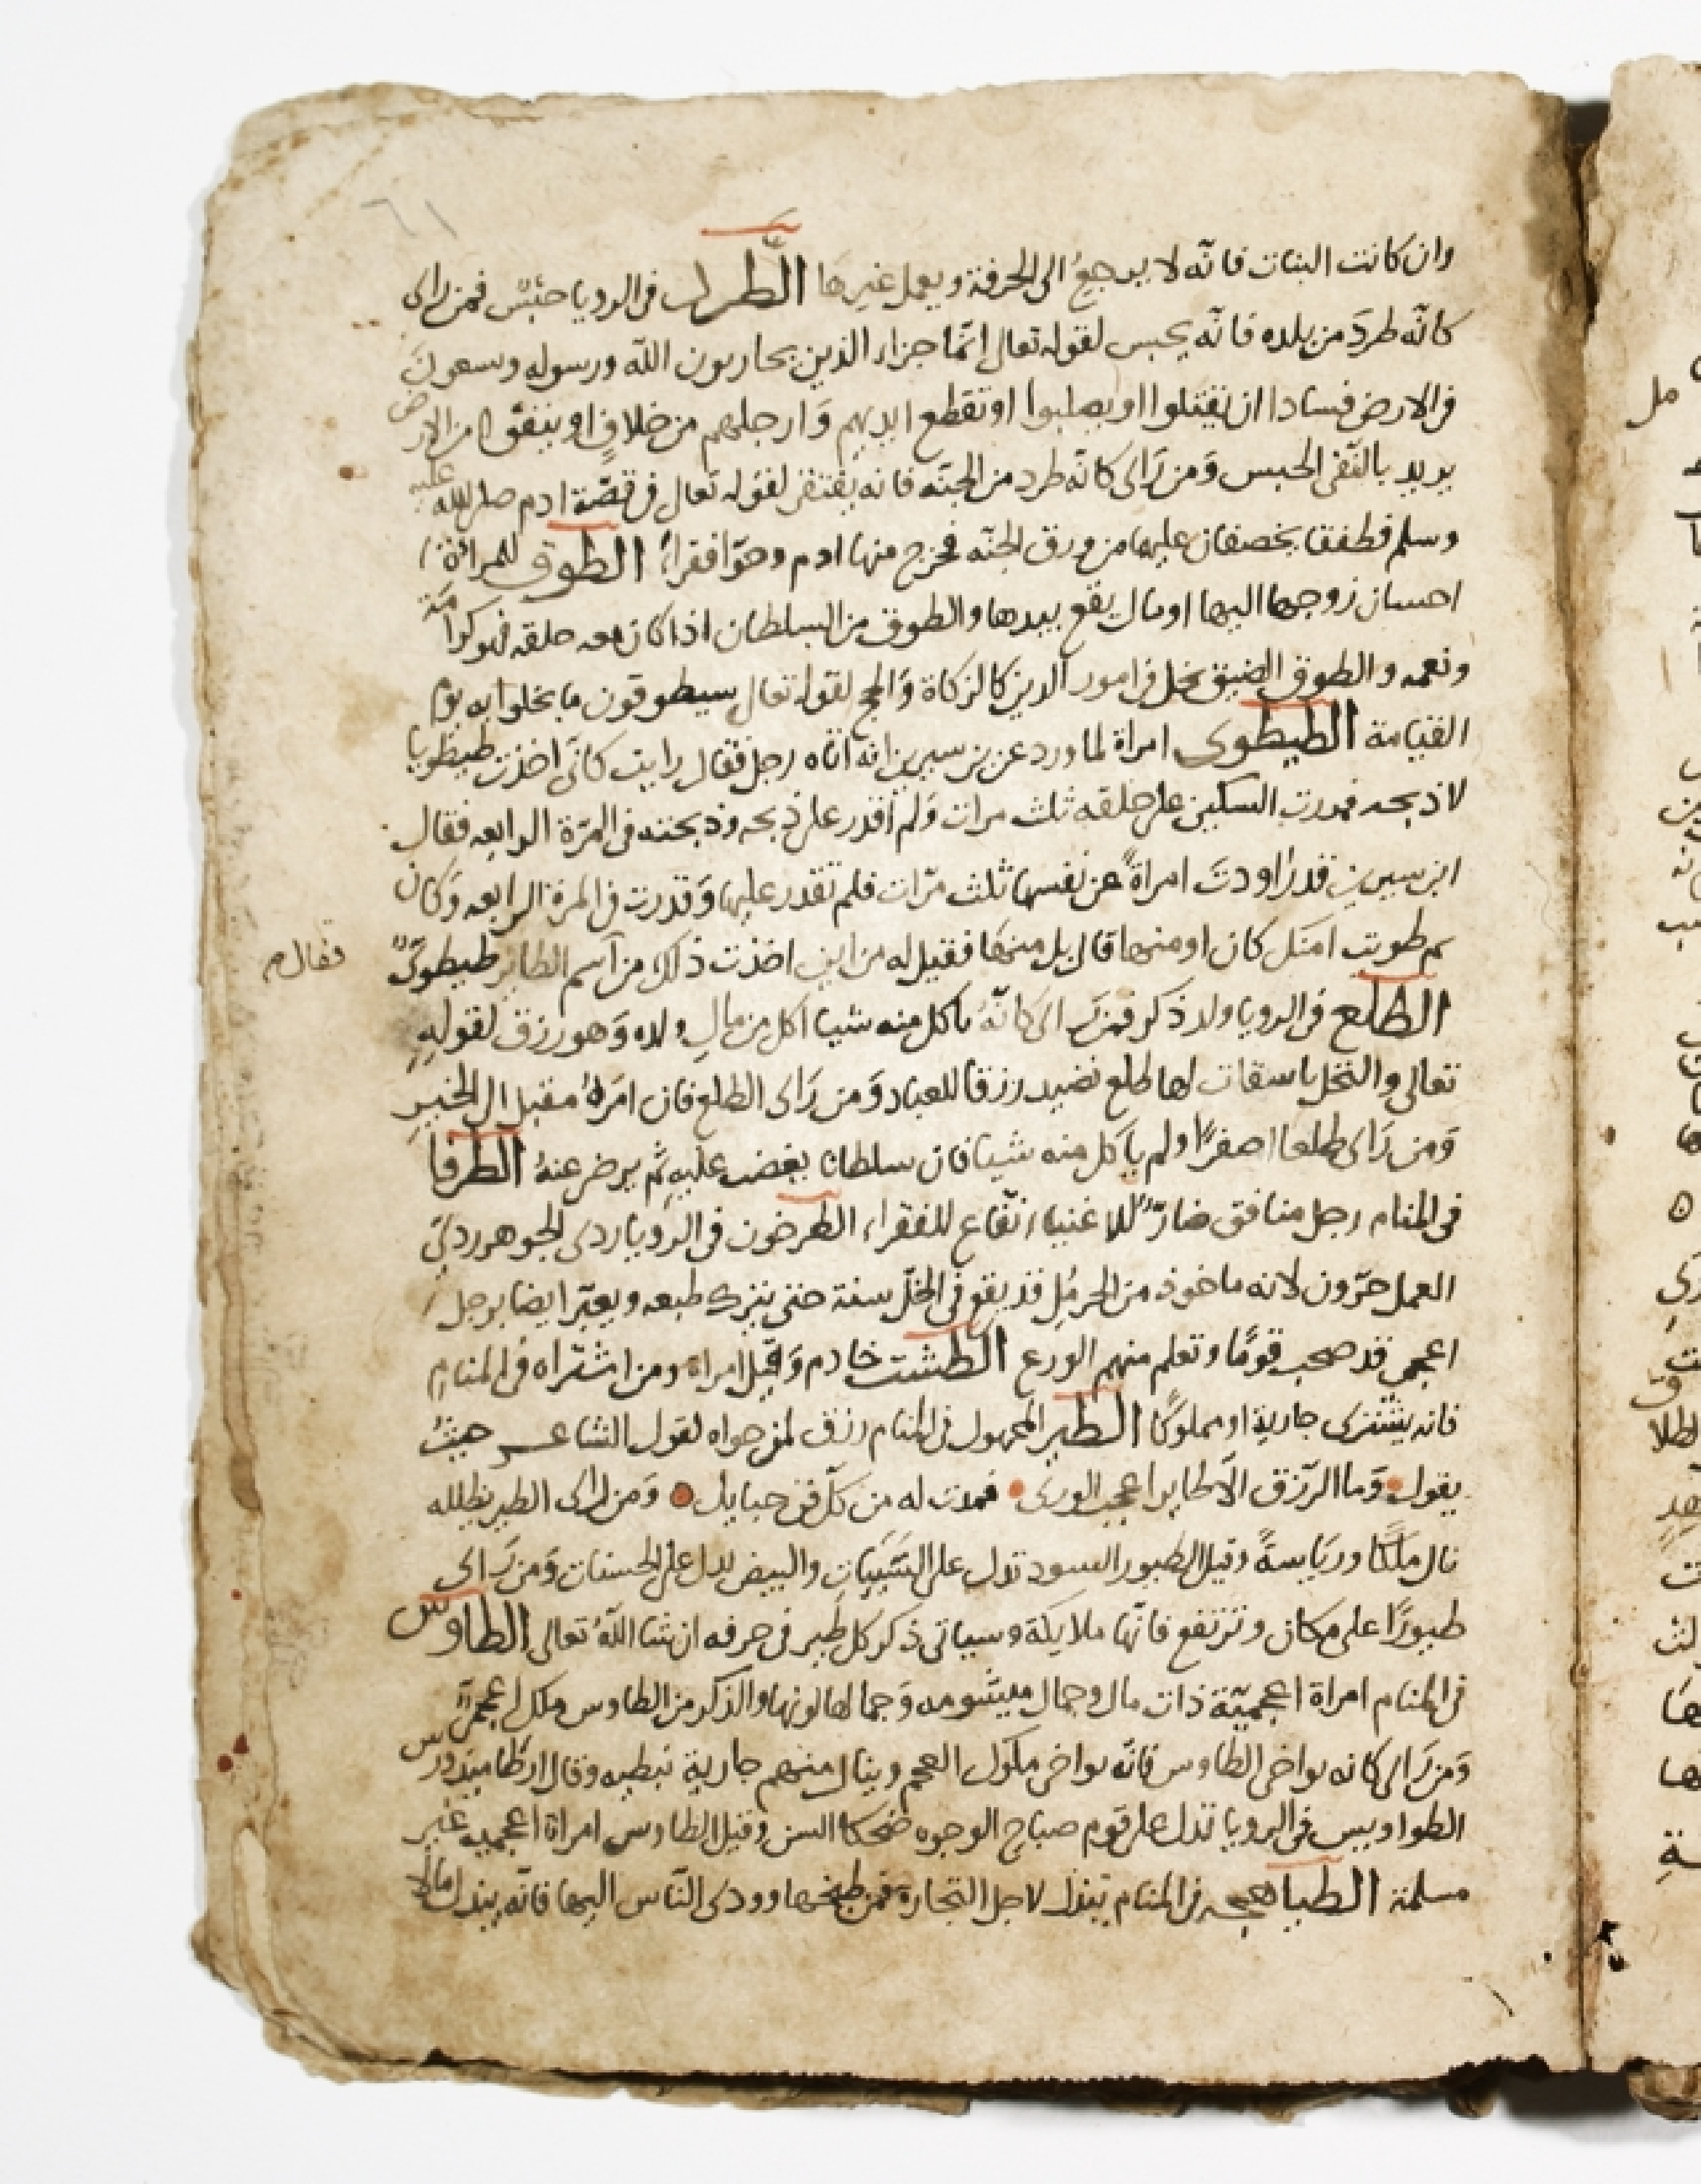 ٦١
وان كانت البنات فانّه لا يرجع الى الحرفة ويعمل غيرها الطرد فى الرويا حبس فمن راى
كانّه طرد من بلده فانّه يحبس لقوله تعالى إنّما جزاء الذين يحاربون الله ورسوله ويسعون
فى الارض فسادا ان يقتلوا او يصلبوا او تقطع ايديهم وارجلهم من خلاف او ينفوا من الارض
يريد بالنّفى الحبس ومن راى كانّه طرد من الجنّه فانه يفتقر لقوله تعالى فى قصّة ادم صلى الله عليه
وسلم فطفقا يخصفان عليهما من ورق الجنّه فخرج منها ادم وحوّا فقرا الطوق للمراة
احسان زوجها اليها او مال يقع بيدها والطوق من السلطان اذا كان معه حلقه فهو كرامة
ونعمه والطوق الضيق بخل فى امور الدين كالزكاة والحج لقوله تعالى سيطوقون ما بخلوا به يوم
القيامة الطيطوى امراة لما ورد عن بن سيرين انه اتاه رجل فقال رايت كانّى اخذت طيطويا
لاذبحه فمررت السكين على حلقه ثلث مرات ولم أقدر على ذبحه وذبحته فى المرّة الرابعه فقال
ابن سيرين قد راودت امراةً عن نفسها ثلث مرّات فلم تقدر عليها وقدرت فى المرة الرابعه وكان
طويت امنك كان او منها قال بل منها فقيل له من اين اخذت ذلك من اسم الطاير طيطوىّ
فقال م
الطلع فى الرويا ولد ذكر فمن راى كانّه ياكل منه شيا اكل من مال ولده وهو رزق لقوله
تعالى والنخل باسقات لها طلع نضيد رزقا للعباد ومن راى الطلع فان امره مقبل الى الخير
ومن راى طلعا اصفرا ولم ياكل منه شيا فان سلطانا يغضب عليه ثم يرضى عنه الطرفا
فى المنام رجل منافق ضارّ للاغنياء نفّاع للفقراء الطرخون فى الرويا ردى الجوهر ردىّ
العمل حرّون لانه ماخوذ من الحرمل قد يقع فى الخلّ سنة حتى يترك طبعه ويعبّر ايضا برجل
اعجمى قد صحب قومًا وتعلم منهم الورع الطشت خادم وقيل امراة ومن اشتراه فى المنام
فانه يشترى جارية او مملوكًا الطير المجهول فى المنام رزق لمن حواه لقول الشاعر حيث
يقول وما الرّزق الّا طاير اعجب الورى فمدت له من كلّ فن حبايل ومن راى الطير تظلله
نال ملكا ورياسةً وقيل الطيور السود تدل على السّيّيات والبيض تدل على الحسنات ومن راى
طيورًا على مكان وترتفع فانّها ملايكة وسياتى ذكر كل طير فى حرفه ان شا الله تعالى الطاوس
فى المنام امراة اعجميّة ذات مال وجمال ميشومه وجمالها لونها والذكر من الطاوس ملك اعجمىّ
ومن راى كانه يواخى الطاوس فانّه يواخى ملوك العجم وينال منهم جارية نبطيه وقال ارطاميدورس
الطواويس فى الرويا تدل على قوم صباح الوجوه ضحكا السن وقيل الطاوس امراة اعجميه غير
مسلمة الطباهجه فى المنام تبذل لاجل التجارة فمن طبخها وودى النّاس اليها فانّه يبذل مالا